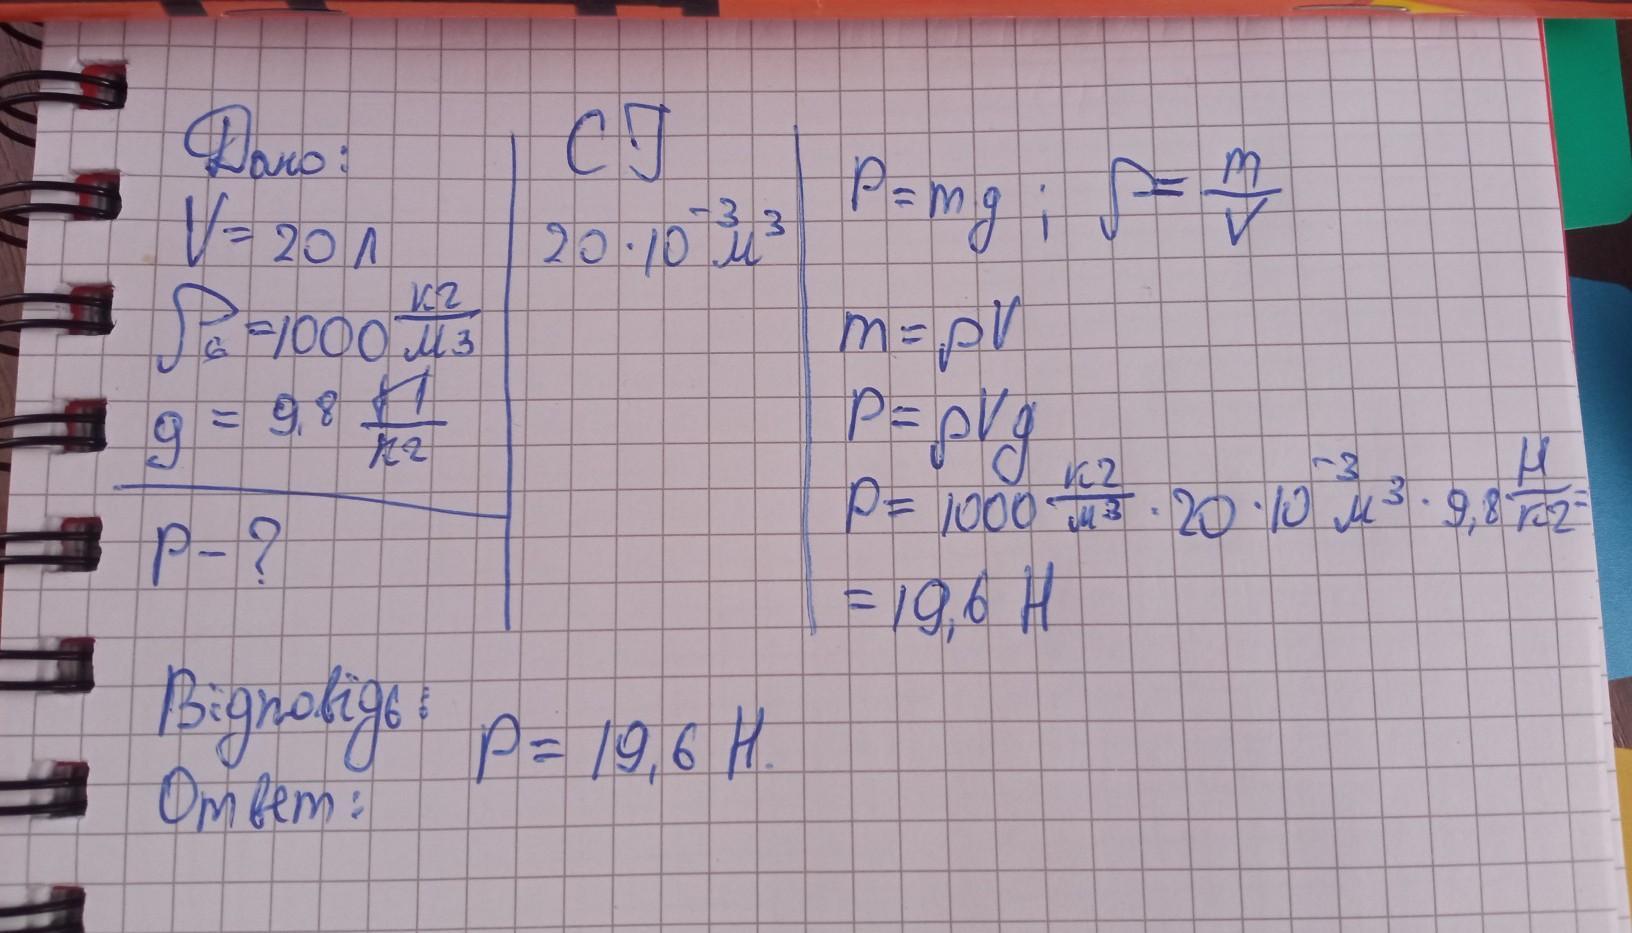 Дано:
V = 20 л
ρв = 1000 кг/м3
g = 9,8 Н/кг
P – ?
СІ
20 · 10⁻³ м³
P = mg ; ρ = m/V
m = ρV
P = ρVg
P = 1000 кг/м³ · 20 · 10⁻³ м³ · 9,8 Н/кг =
= 19,6 Н
Відповідь:
P = 19,6 Н.
Ответ: